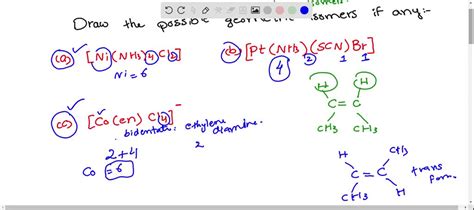 isomers.
Draw the possible geometric isomers if any:-
(a) [Ni(NH3)4Cl2] (b) [Pt(NH3)(SCN)Br]
Ni = 6 4 2 1 1
H H
C = C
CH3 CH3
(c) [Co(en) Cl4]-
bidentate: ethylene diamine.
2+4 2
Co = 6
H CH3
C = C
CH3 H
trans form.